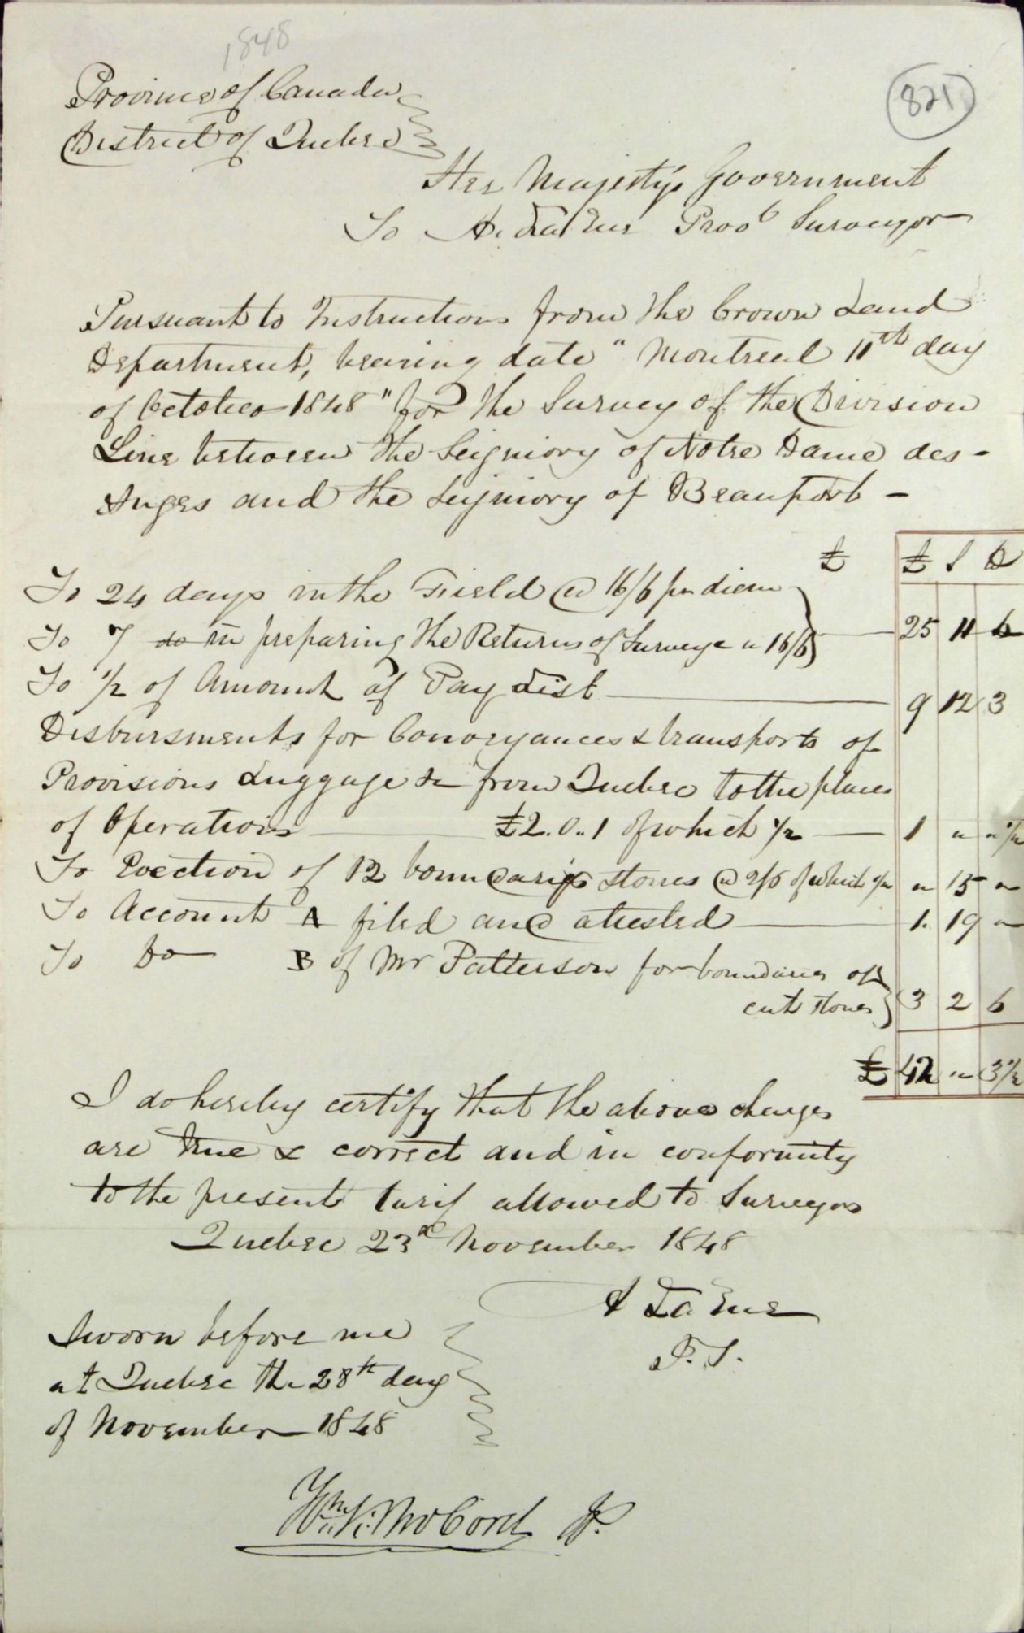 1848
821
Province of Canada
District of Quebec
Her Majesty's Government
To A. La Rue Prov.l Surveyor
Pursuant to Instructions from the Crown Land
Department, bearing date "Montreal 11th day
of October 1848" for the Survey of the Division
Line between the Seigniory of Notre Dame des -
Anges and the Seigniory of Beauport -
£ £ S D
To 24 days in the Field @ 16/6 per diem
To 7 do in preparing the Returns of Survey " 16/6 25 11 6
To 1/2 of Amount of Pay List 9 12 3
Disbursments for Conveyances & transports of
Provisions Luggage &c from Quebec to the places
of Operations £2.0.1 of which 1/2 1 " " 1/2
To Erection of 12 boundary stones @ 2/6 of which 1/2 " 15 "
To Account A filed and attested 1. 19 "
To Do B of Mr Patterson for boundaries of
cut stones 3 2 6
£ 42 " 3 1/2
I do hereby certify that the above charges
are true & correct and in conformity
to the present tarif allowed to Surveyors
Quebec 23rd November 1848
A La Rue
P.S.
Sworn before me
at Quebec the 28th day
of November 1848
Wm K. McCord JP.